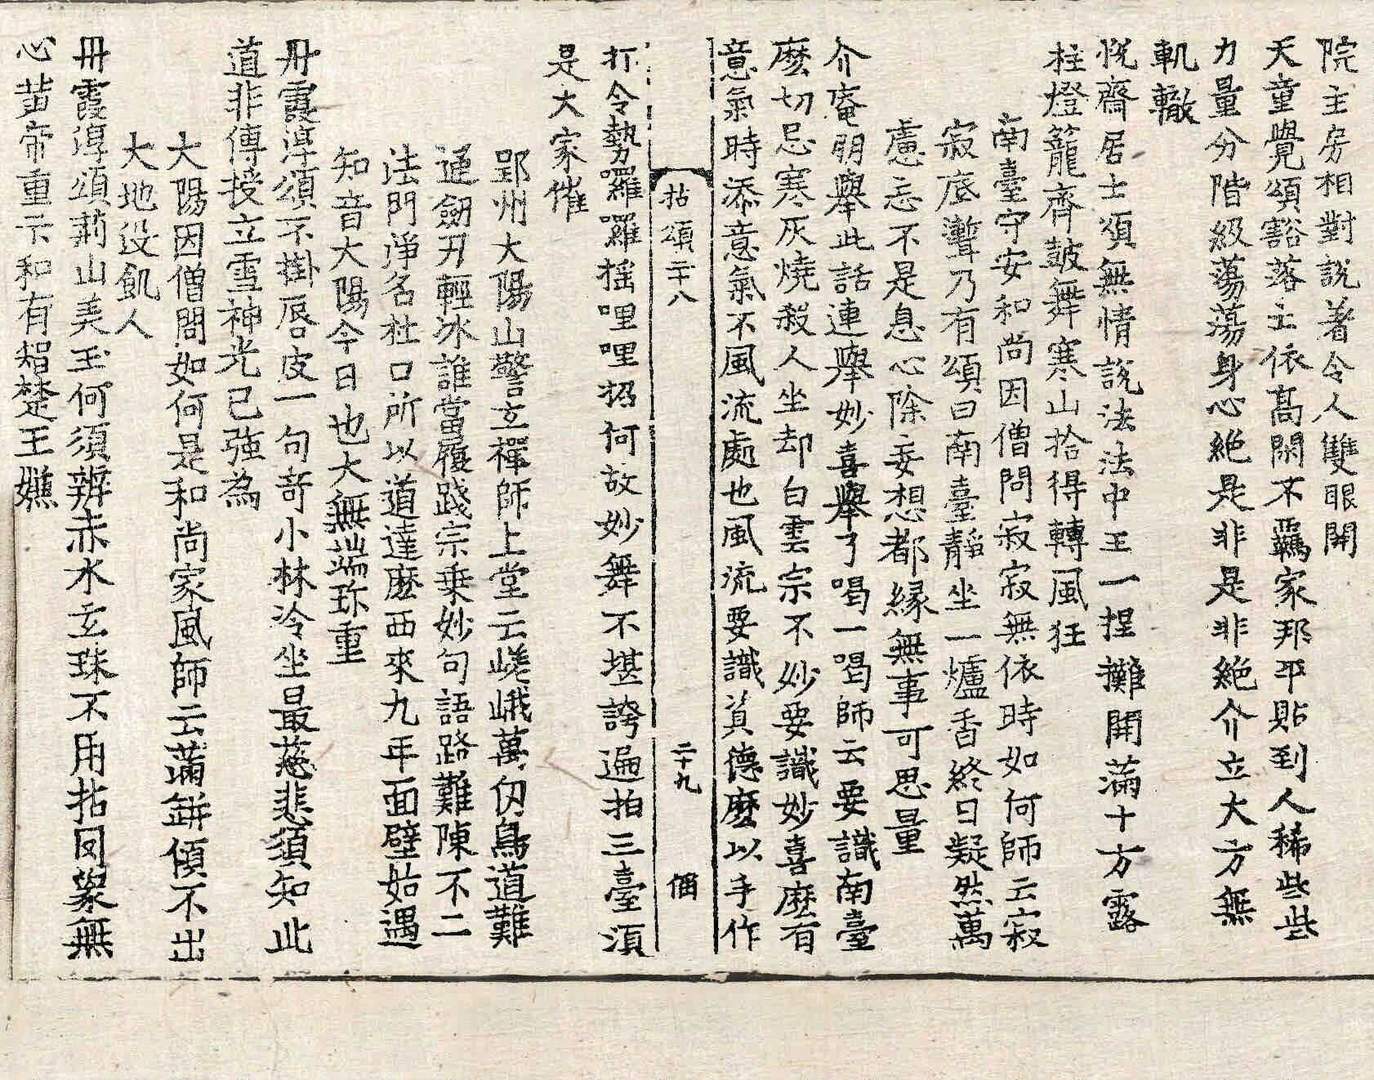 院主房相對說著令人雙眼開
天童覺頌豁落主依髙閑不羈家邦平貼到人稀些些
力量分階級蕩蕩身心絶是非是非絶介立大方無
軌轍
悅齋居士頌無情說法法中王一捏攤開滿十方露
柱燈籠齊皷舞寒山拾得轉風狂
南臺守安和尚因僧問寂寂無依時如何師云寂
寂底聻乃有頌曰南臺靜坐一爐香終日凝然萬
慮忘不是息心除妄想都緣無事可思量
介庵朋擧此話連擧妙喜擧了喝一喝師云要識南臺
麽切忌寒灰燒殺人坐却白雲宗不妙要識妙喜麽有
意氣時添意氣不風流處也風流要識眞德麽以手作
拈頌二十八 二十九 㑻
打令勢囉囉搖哩哩招何故妙舞不堪誇遍拍三臺須
是大家催
郢州大陽山警玄禪師上堂云嵯峨萬仞鳥道難
通劒刃輕冰誰當履踐宗乗妙句語路難陳不二
法門淨名杜口所以道達麽西來九年面壁始遇
知音大陽今日也大無端珎重
丹霞淳頌不掛唇皮一句奇小林冷坐最慈悲須知此
道非傳授立雪神光已強為
大陽因僧問如何是和尚家風師云滿缾傾不出
大地沒飢人
丹霞淳頌荊山美玉何須辨赤水玄珠不用拈罔𧰼無
心黃帝重卞和有智楚王嫌